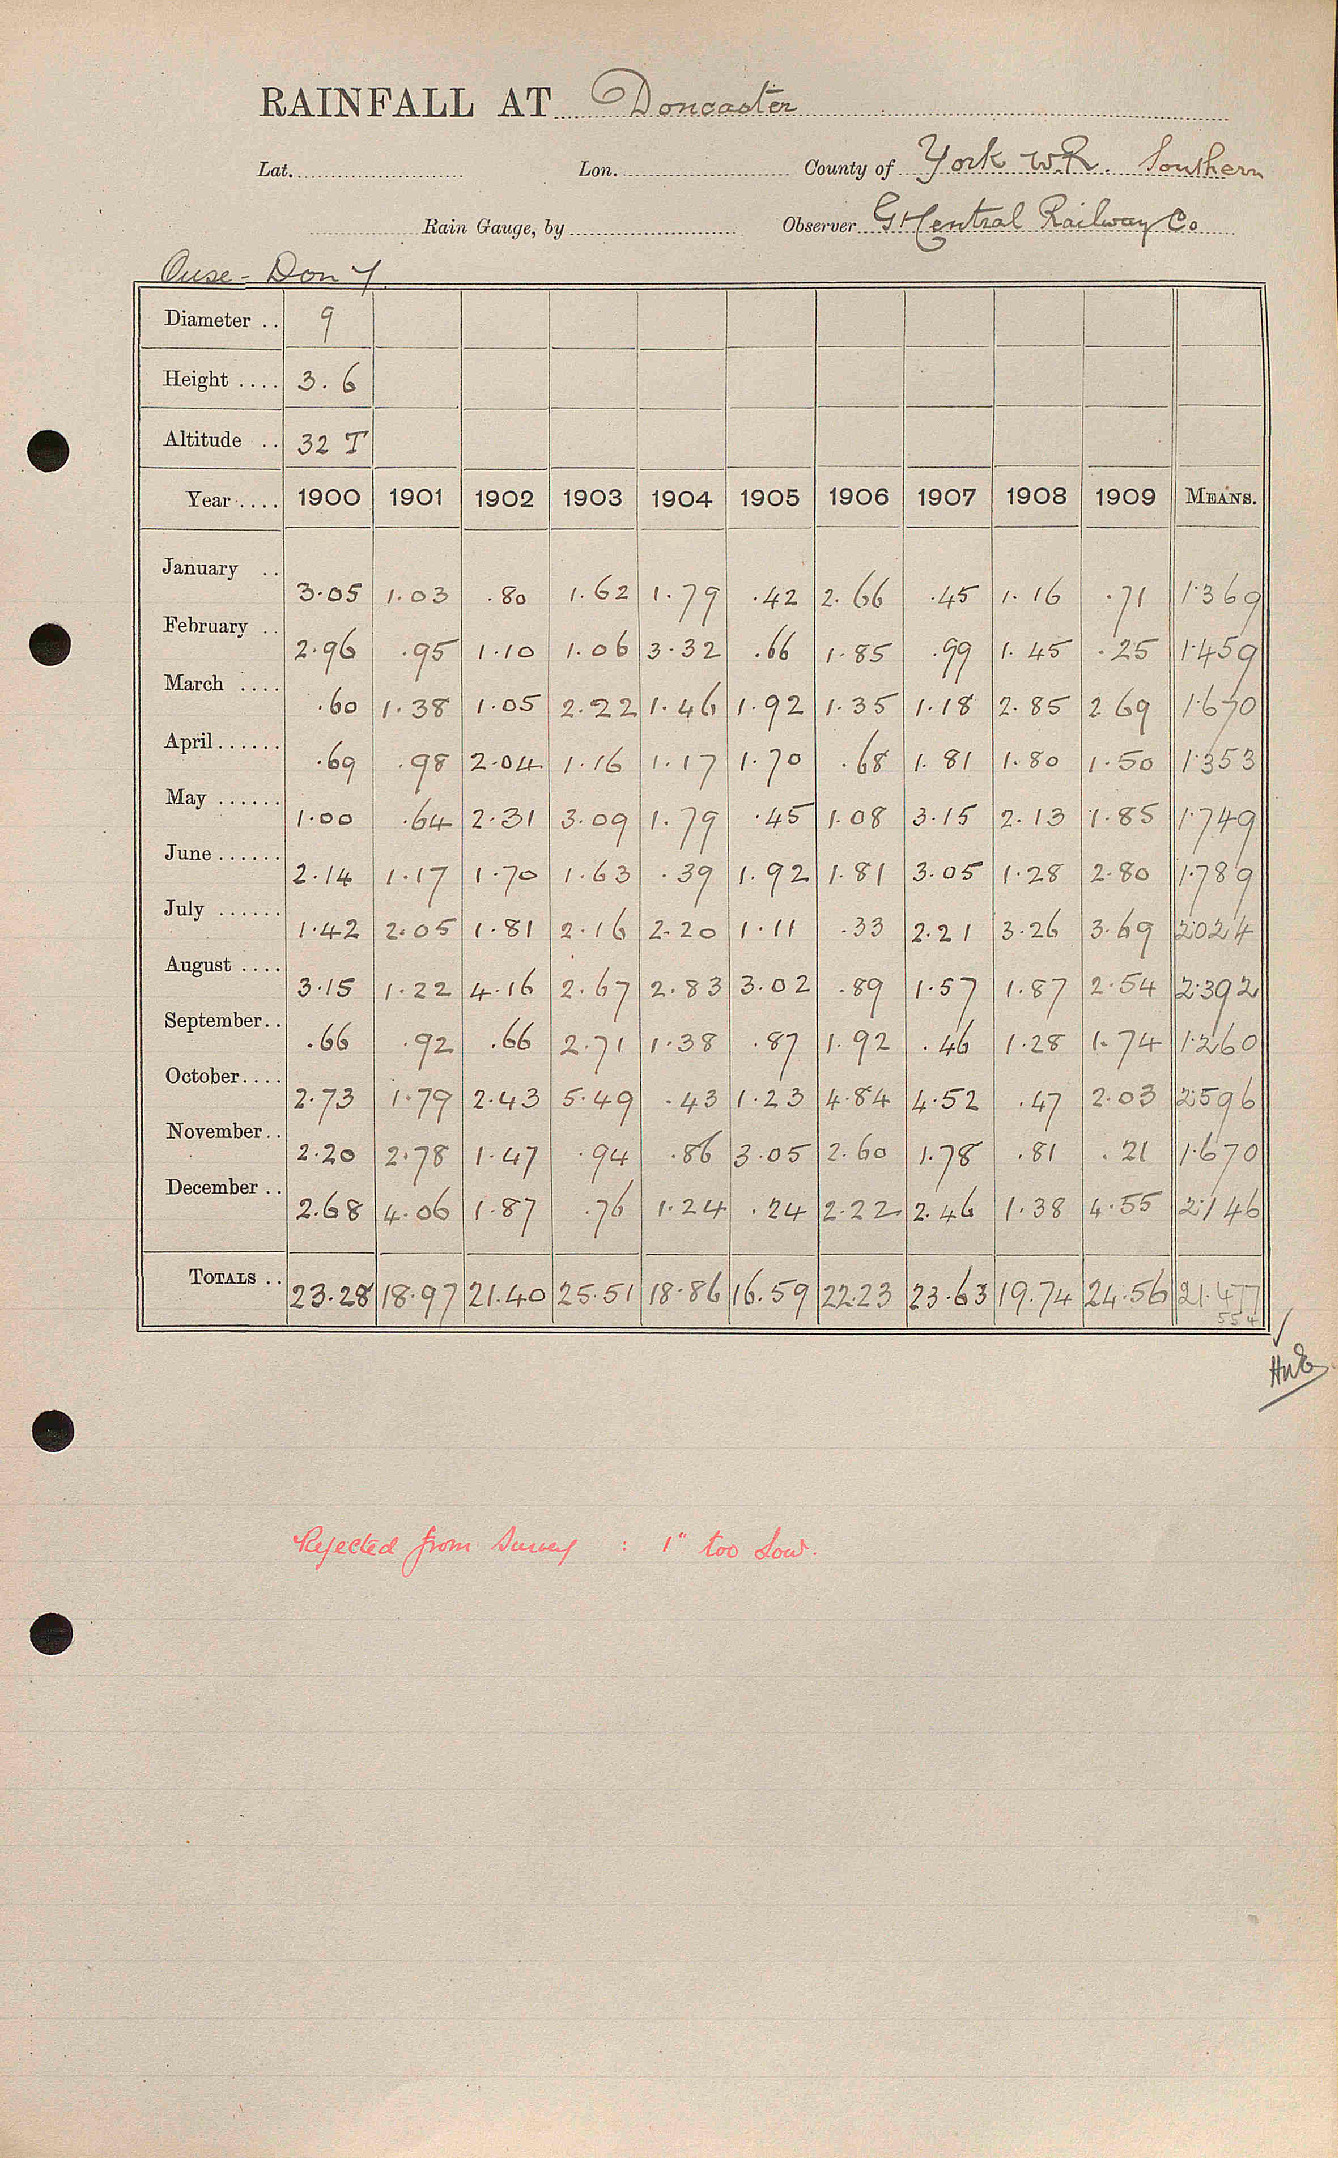 RAINFALL AT Doncaster
Lat. Lon. County of York W.R. Southern
Rain Gauge, by Observer Gt Central Railway Co
Ouse - Don Y
Diameter .. 9
Height .... 3.6
Altitude .. 32 T
Year .... 1900 1901 1902 1903 1904 1905 1906 1907 1908 1909 MEANS.
January .. 3.05 1.03 .80 1.62 1.79 .42 2.66 .45 1.16 .71 1.369
February .. 2.96 .95 1.10 1.06 3.32 .66 1.85 .99 1.45 .25 1.459
March .... .60 1.38 1.05 2.22 1.46 1.92 1.35 1.18 2.85 2.69 1.670
April ...... .69 .98 2.04 1.16 1.17 1.70 .68 1.81 1.80 1.50 1.353
May ...... 1.00 .64 2.31 3.09 1.79 .45 1.08 3.15 2.13 1.85 1.749
June ...... 2.14 1.17 1.70 1.63 .39 1.92 1.81 3.05 1.28 2.80 1.789
July ...... 1.42 2.05 1.81 2.16 2.20 1.11 .33 2.21 3.26 3.69 2.024
August .... 3.15 1.22 4.16 2.67 2.83 3.02 .89 1.57 1.87 2.54 2.392
September.. .66 .92 .66 2.71 1.38 .87 1.92 .46 1.28 1.74 1.260
October.... 2.73 1.79 2.43 5.49 .43 1.23 4.84 4.52 .47 2.03 2.596
November.. 2.20 2.78 1.47 .94 .86 3.05 2.60 1.78 .81 .21 1.670
December .. 2.68 4.06 1.87 .76 1.24 .24 2.22 2.46 1.38 4.55 2.146
TOTALS .. 23.28 18.97 21.40 25.51 18.86 16.59 22.23 23.63 19.74 24.56 21.477
554
Rejected from Survey : 1" too low.